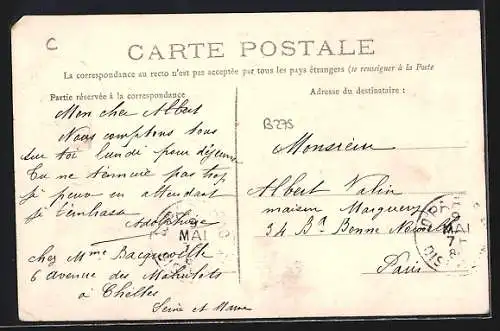 C
CARTE POSTALE
La correspondance au recto n'est pas acceptée par tous les pays étrangers (se renseigner à la Poste
Partie réservée à la correspondance
Adresse du destinataire :
Mon cher Albert
Nous comptons tous
sur toi lundi pour déjeuner
Tu ne t'ennuie pas trop
je peux en attendant
je t'embrasse
chez Mme Bacqueville
6 avenue des
à Chelles
Seine et Marne
B275
Monsieur
Albert Valin
maison Marguery
34 Bd Bonne Nouvelle
Paris
MAI
MAI